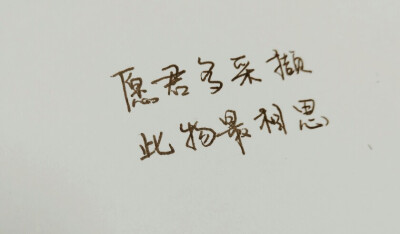 愿君多采撷
此物最相思